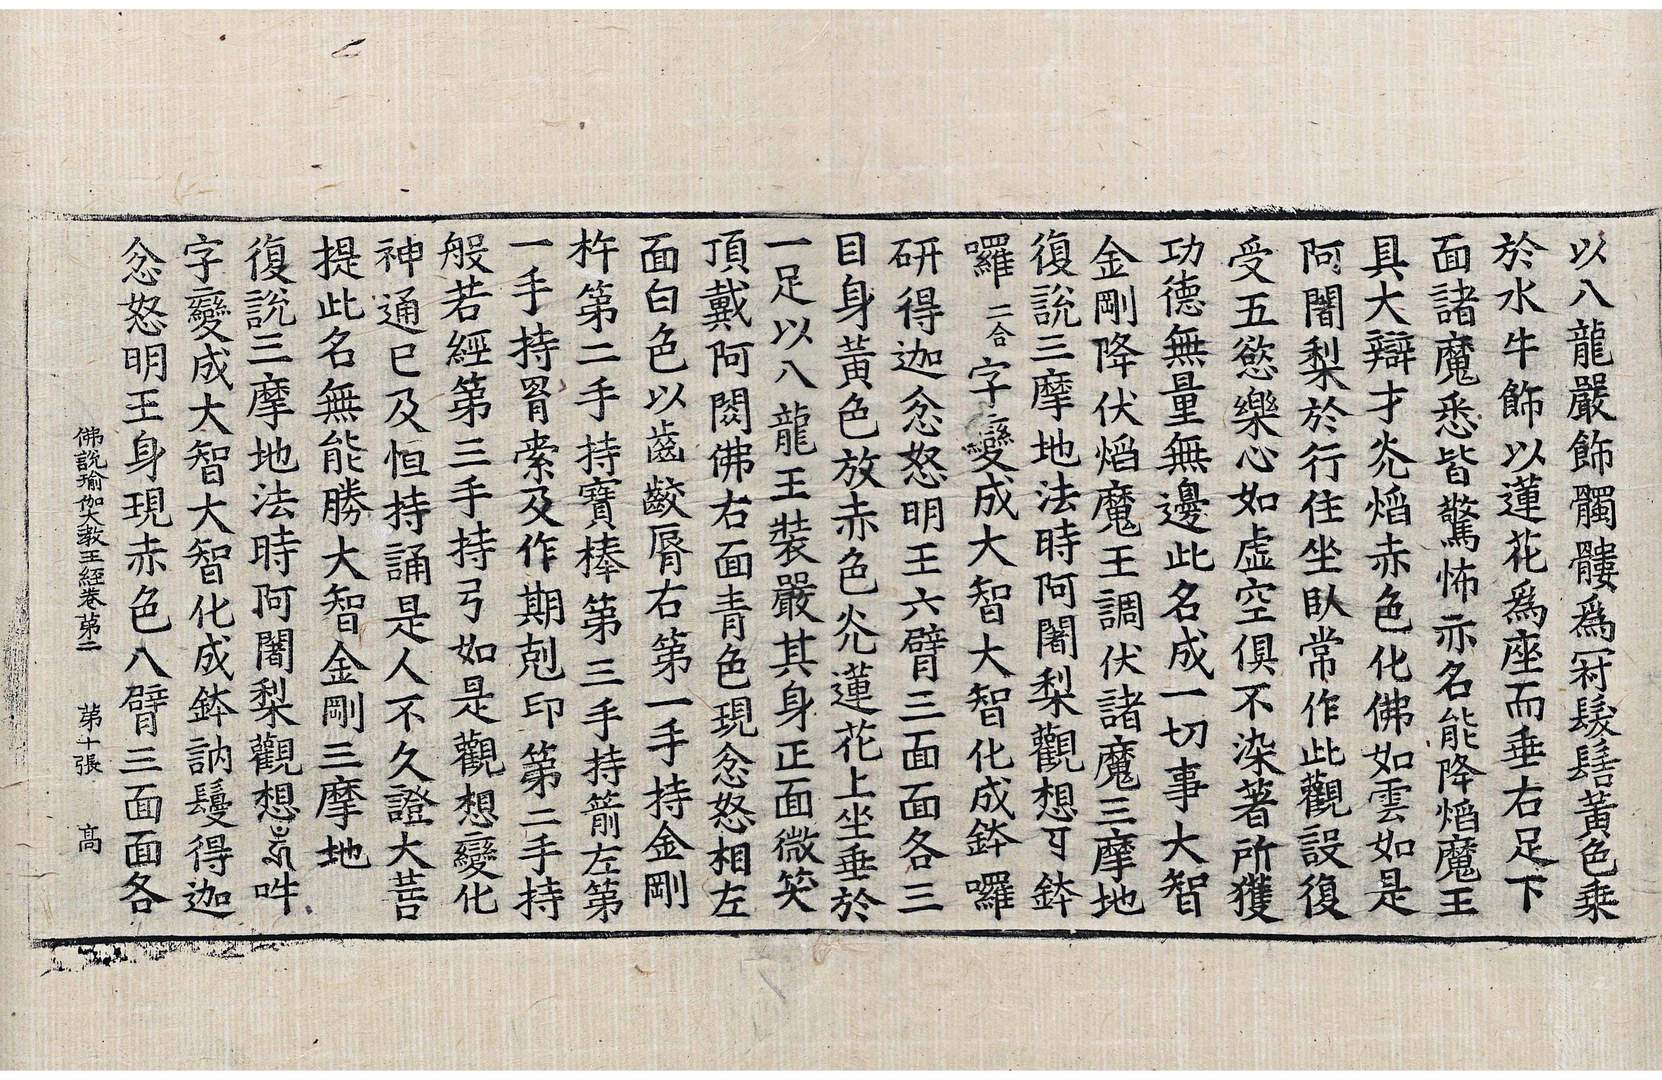 以八龍嚴飾髑髏爲冠髮髻黃色乗
於水牛飾以蓮花爲座而垂右足下
面諸魔悉皆驚怖亦名能降熖魔王
具大辯才灮熖赤色化佛如雲如是
阿闍梨於行住坐卧常作此觀設復
受五慾樂心如虛空俱不染著所獲
功德無量無邊此名成一切事大智
金剛降伏熖魔王調伏諸魔三摩地
復說三摩地法時阿闍梨觀想𑖮鉢
囉二合字變成大智大智化成鉢囉
研得迦忿怒明王六臂三面面各三
目身黃色放赤色灮蓮花上坐垂於
一足以八龍王裝嚴其身正面微笑
頂戴阿閦佛右面青色現忿怒相左
面白色以齒齩脣右第一手持金剛
杵第二手持寶棒第三手持箭左第
一手持罥索及作期剋印第二手持
般若經第三手持弓如是觀想變化
神通已及恒持誦是人不久證大菩
提此名無能勝大智金剛三摩地
復說三摩地法時阿闍梨觀想吽
字變成大智大智化成鉢訥鬘得迦
忿怒明王身現赤色八臂三面面各
佛說瑜伽大教王經卷第二 第十張 高